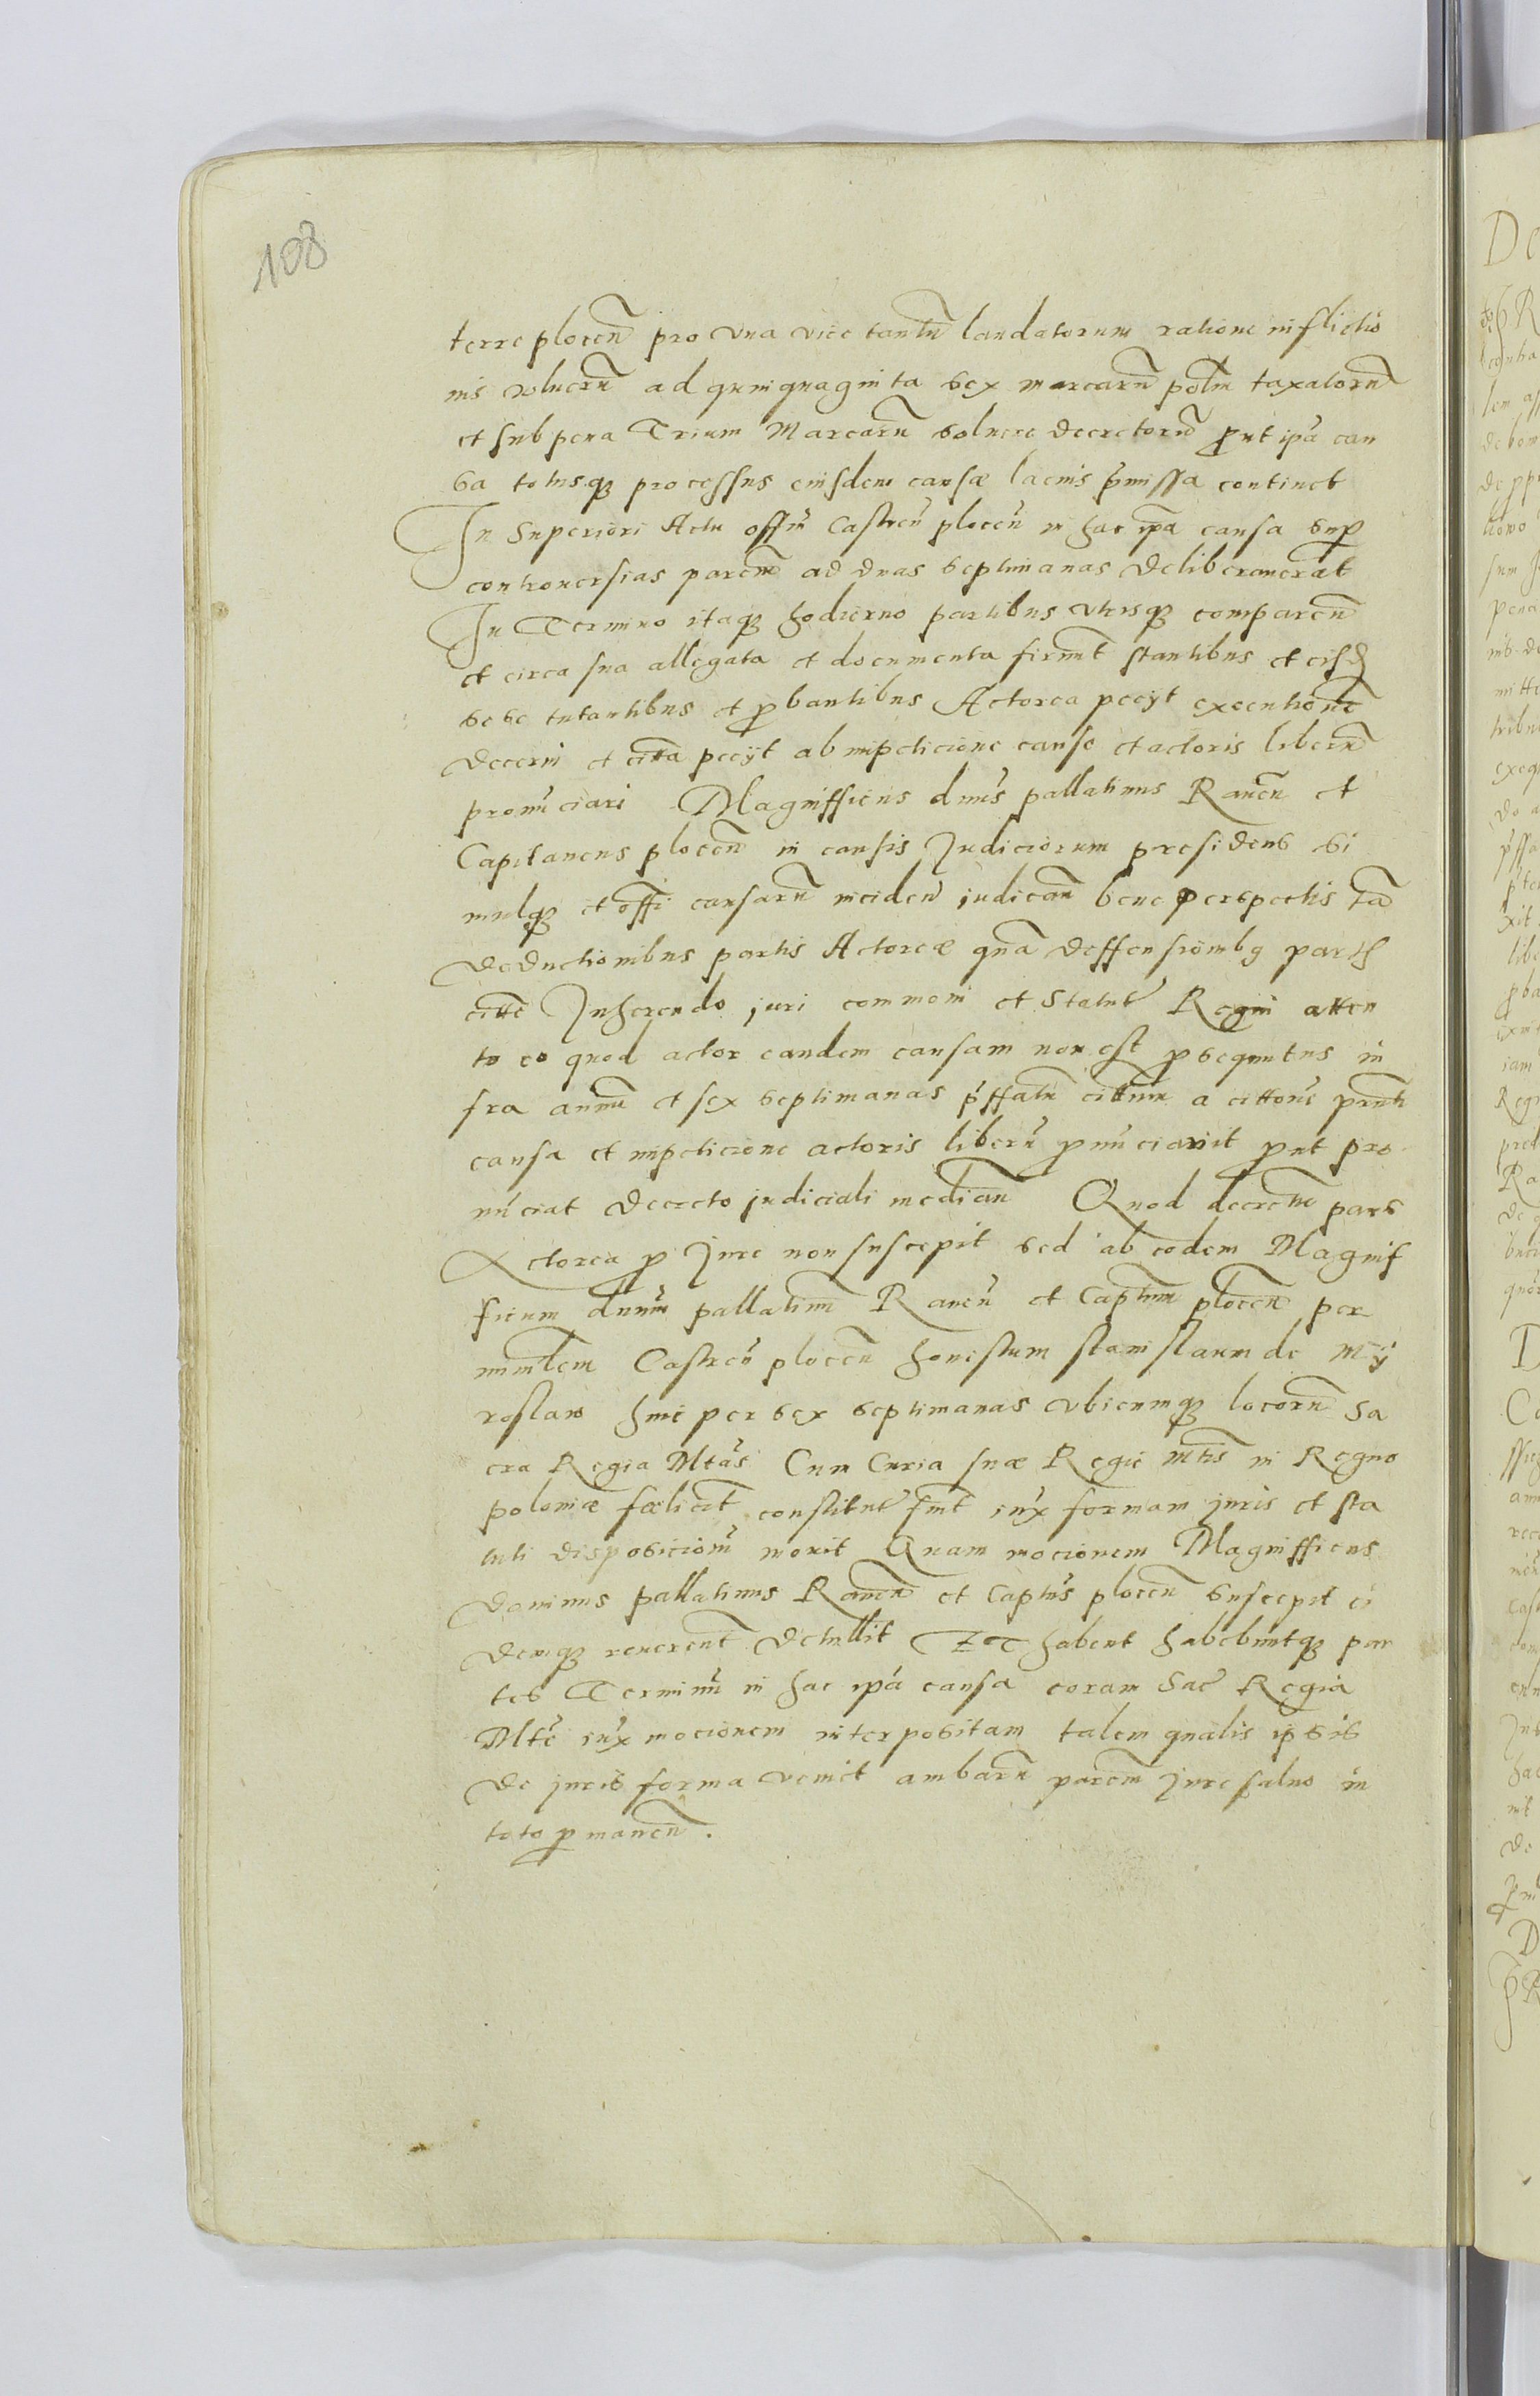 108
terre plocen pro vna vice tantu laudatorum ratione inflictio
nis vulneru ad quinquaginta sex marcaru polm taxatoru
et sub pena Trium Marcaru soluere decretoru prut ipa cau
sa totusq processus eiusdem causæ lacius pmissa continet
In Superiori Actu offm Castren plocen in hac ipa causa sup
controuersias parcm ad duas septimanas deliberauerat
In Termino itaq hodierno partibus vtrisq comparen
et circa sua allegata et documenta firmt stantibus et eisd
sese tutantibus et pbantibus Actorea peeyt executione
decerni et citta peeyt ab inpeticione cause et actoris liberu
pronuciari Magnifficus dnus pallatinus Rauen et
Capitaneus plocen in causis Judiciorum presidens si
mulq et offi causaru inciden judican bene perspectis ta
deductionibus partis Actoreæ qua deffensionibq part
citte Inherendo juri communi et Statut Regni atten
to eo quod actor eandem causam non est psequutus in
fra annu et sex septimanas pffatu cittum a cittone prnti
causa et inpeticione actoris liberu pnuciauit put pro
nuciat decreto judiciali median Quod decretu pars
Actorea p Jure non suscepit sed ab eodem Magnif
ficum dnum pallatinu Rauen et Captum plocen per
mintlem Castren plocen honestum stanislaum de My
roslaw hinc per sex septimanas vbicumq locoru Sa
cra Regia Mtas Cum Curia suæ Regie Mtis in Regno
poloniæ fælicit constitut fuit iux formam juris et sta
tuti disposicionu mouit Quam mocionem Magnifficus
dominus pallatinus Rauen et Captus plocen suscepit ei
demq reuerent detullit Et habent habebuntq par
tes Terminu in hac ipa causa coram Sac Regia
Mte iux mocionem interpositam talem qualis ipsis
de juris forma venit ambaru parcm jure saluo in
toto pmanen.